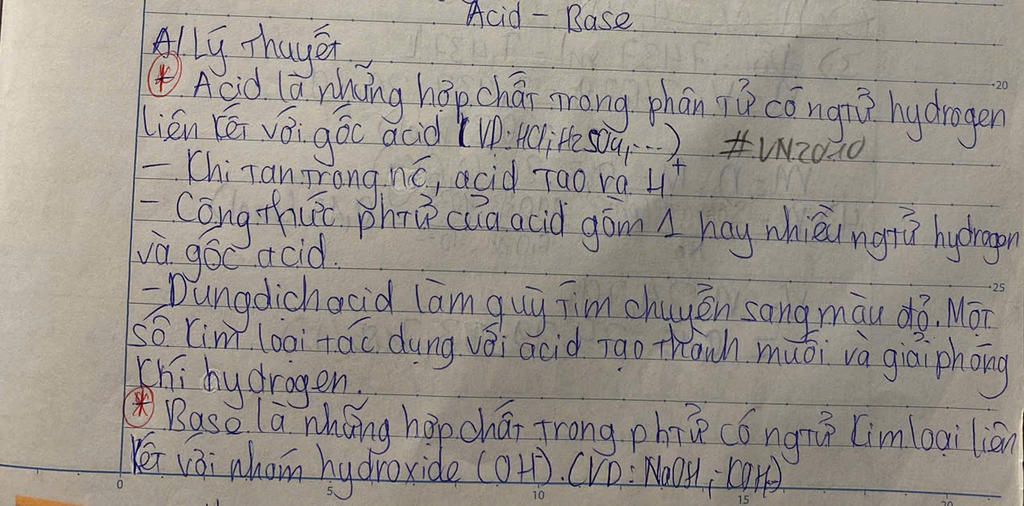 Acid - Base
A/ Lý thuyết
* Acid là những hợp chất trong phân tử có ngtử hydrogen
liên kết với gốc acid (VD: HCl, H2SO4,...) #VN2010
- Khi tan trong nc, acid tạo ra H+
- Công thức phtử của acid gồm 1 hay nhiều ngtử hydrogen
và gốc acid.
- Dung dịch acid làm quỳ tím chuyển sang màu đỏ. Một
số kim loại tác dụng với acid tạo thành muối và giải phóng
khí hydrogen.
* Base là những hợp chất trong phtử có ngtử kim loại liên
kết với nhóm hydroxide (OH). (VD: NaOH, KOH)
0 5 10 15 20
20
25